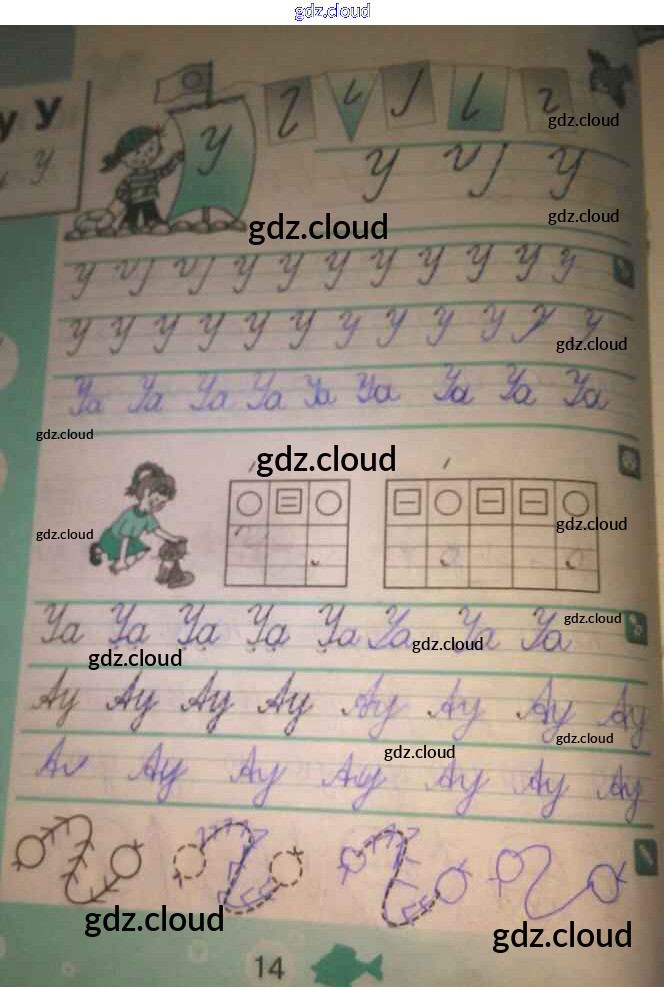 gdz.cloud
у У
У
у
gdz.cloud
у у у
gdz.cloud
gdz.cloud
у у у у у у у у у у у
у у у у у у у у у у у у
gdz.cloud
Уа Уа Уа Уа Уа Уа Уа Уа Уа
gdz.cloud
gdz.cloud
gdz.cloud
gdz.cloud
Уа Уа Уа Уа Уа Уа Уа Уа
gdz.cloud
gdz.cloud
gdz.cloud
Ау Ау Ау Ау Ау Ау Ау Ау
gdz.cloud
gdz.cloud
Ау Ау Ау Ау Ау Ау
gdz.cloud
gdz.cloud
14